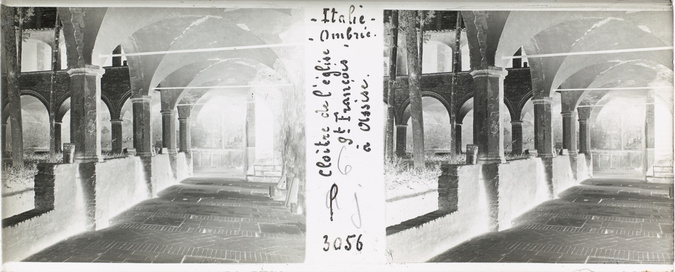 - Italie -
- Ombrie.
Cloître de l'église
St François,
à Assise.
3056